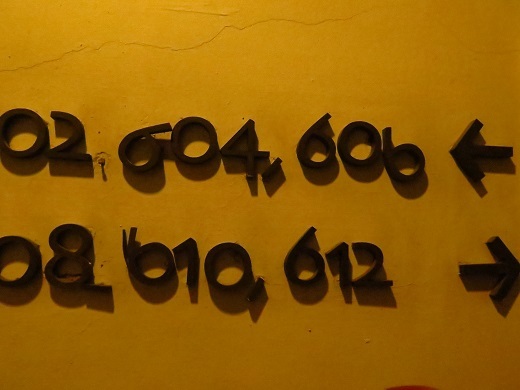 02, 604, 606 ←
08, 610, 612 →